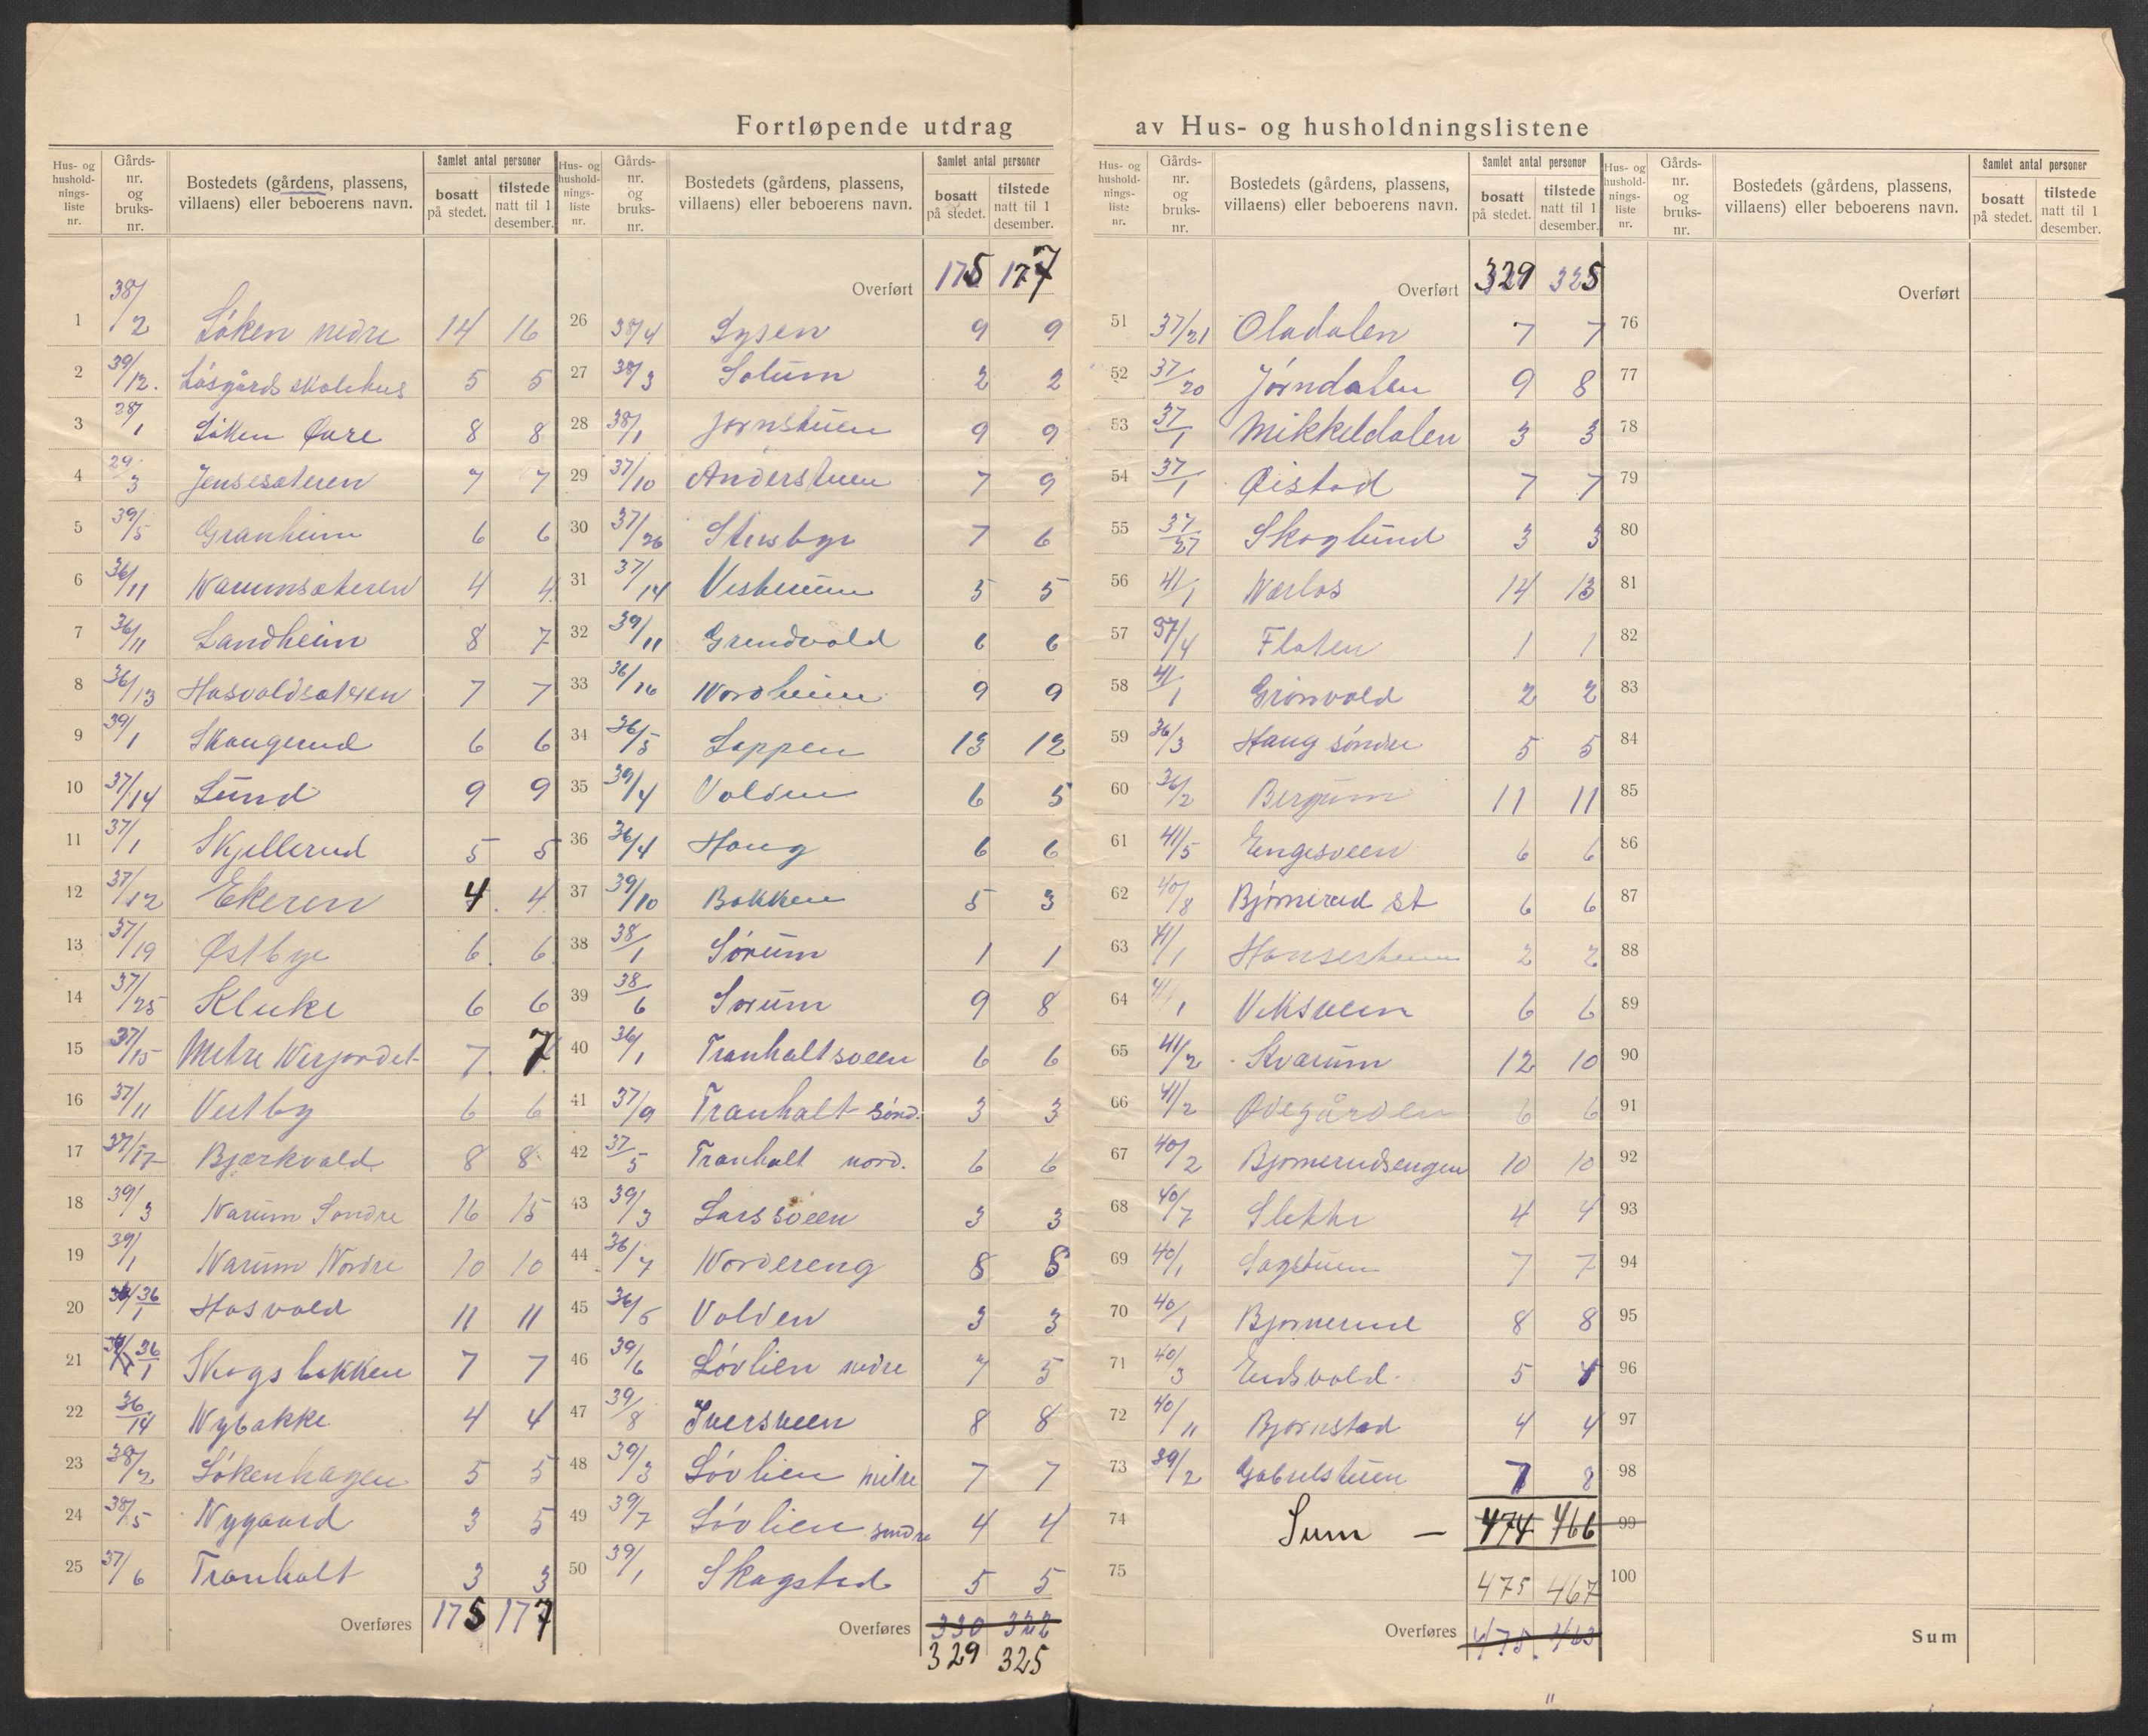 Fortløpende utdrag av Hus- og husholdningslistene
Hus- og hushold-nings-liste nr. | Gårds-nr. og bruks-nr. | Bostedets (gårdens, plassens, villaens) eller beboerens navn. | Samlet antal personer bosatt på stedet. | tilstede natt til 1 desember.
1 38/2 Løken nedre 14 16
2 39/12. Løsgårds skolehus 5 5
3 38/1 Løken Øvre 8 8
4 29/3 Jensesæteren 7 7
5 39/5 Granheim 6 6
6 36/11 Narumsæteren 4 4
7 36/11 Landheim 8 7
8 36/13 Hasvoldsæteren 7 7
9 39/1 Skaugerud 6 6
10 37/14 Lund 9 9
11 37/1 Skjellerud 5 5
12 37/12 Ekeren 4 4
13 37/19 Østbye 6 6
14 37/25 Kluke 6 6
15 37/15 Metre Nerjordet 7 7
16 37/11 Vestby 6 6
17 37/17 Bjærkvold 8 8
18 39/3 Narum Søndre 16 15
19 39/1 Narum Nordre 10 10
20 36/1 Hasvold 11 11
21 36/1 Skogsbakken 7 7
22 36/14 Nybakke 4 4
23 38/2 Løkenhagen 5 5
24 38/5 Nygaard 3 5
25 37/6 Tranholt 3 3
Overføres 175 177
Hus- og hushold-nings-liste nr. | Gårds-nr. og bruks-nr. | Bostedets (gårdens, plassens, villaens) eller beboerens navn. | Samlet antal personer bosatt på stedet. | tilstede natt til 1 desember.
Overført 175 177
26 38/4 Lysen 9 9
27 38/3 Solum 2 2
28 38/1 Jørnstuen 9 9
29 37/10 Anderstuen 7 9
30 37/26 Stensbye 7 6
31 37/14 Vesterum 5 5
32 39/11 Grundvold 6 6
33 36/16 Nordheim 9 9
34 36/5 Loppen 13 12
35 39/4 Volden 6 5
36 36/4 Haug 6 6
37 39/10 Bakken 5 3
38 38/1 Sørum 1 1
39 38/6 Sørum 9 8
40 36/1 Tranholtsveen 6 6
41 37/9 Tranholt sønd. 3 3
42 37/5 Tranholt nord. 6 6
43 39/3 Larssveen 3 3
44 36/7 Nordereng 8 8
45 36/6 Volden 3 3
46 39/6 Løvlien nedre 7 5
47 39/8 Iversveen 8 8
48 39/3 Løvlien mitre 7 7
49 39/7 Løvlien søndre 4 4
50 39/1 Skogstad 5 5
Overføres 330 322
329 325
Hus- og hushold-nings-liste nr. | Gårds-nr. og bruks-nr. | Bostedets (gårdens, plassens, villaens) eller beboerens navn. | Samlet antal personer bosatt på stedet. | tilstede natt til 1 desember.
Overført 329 325
51 37/21 Oladalen 7 7
52 37/20 Jørndalen 9 8
53 37/1 Mikkeldalen 3 3
54 37/1 Øistad 7 7
55 37/27 Skoglund 3 3
56 41/1 Nærlos 14 13
57 37/4 Floten 1 1
58 41/1 Grönvold 2 2
59 36/3 Haug søndre 5 5
60 36/2 Bergum 11 11
61 41/5 Engesveen 6 6
62 40/8 Bjørnerud st 6 6
63 41/1 Hansestuen 2 2
64 41/1 Viksveen 6 6
65 41/2 Kvarum 12 10
66 41/2 Ødegården 6 6
67 40/2 Bjørnerudsengen 10 10
68 40/7 Slette 4 4
69 40/1 Sagstuen 7 7
70 40/1 Bjørnerud 8 8
71 40/3 Eidsvold 5 4
72 40/11 Bjørnstad 4 4
73 39/2 Gabrielstuen 7 8
74 Sum — 474 466
75 475 467
Overføres 475 463
Hus- og hushold-nings-liste nr. | Gårds-nr. og bruks-nr. | Bostedets (gårdens, plassens, villaens) eller beboerens navn. | Samlet antal personer bosatt på stedet. | tilstede natt til 1 desember.
Overført
76
77
78
79
80
81
82
83
84
85
86
87
88
89
90
91
92
93
94
95
96
97
98
99
100
Sum